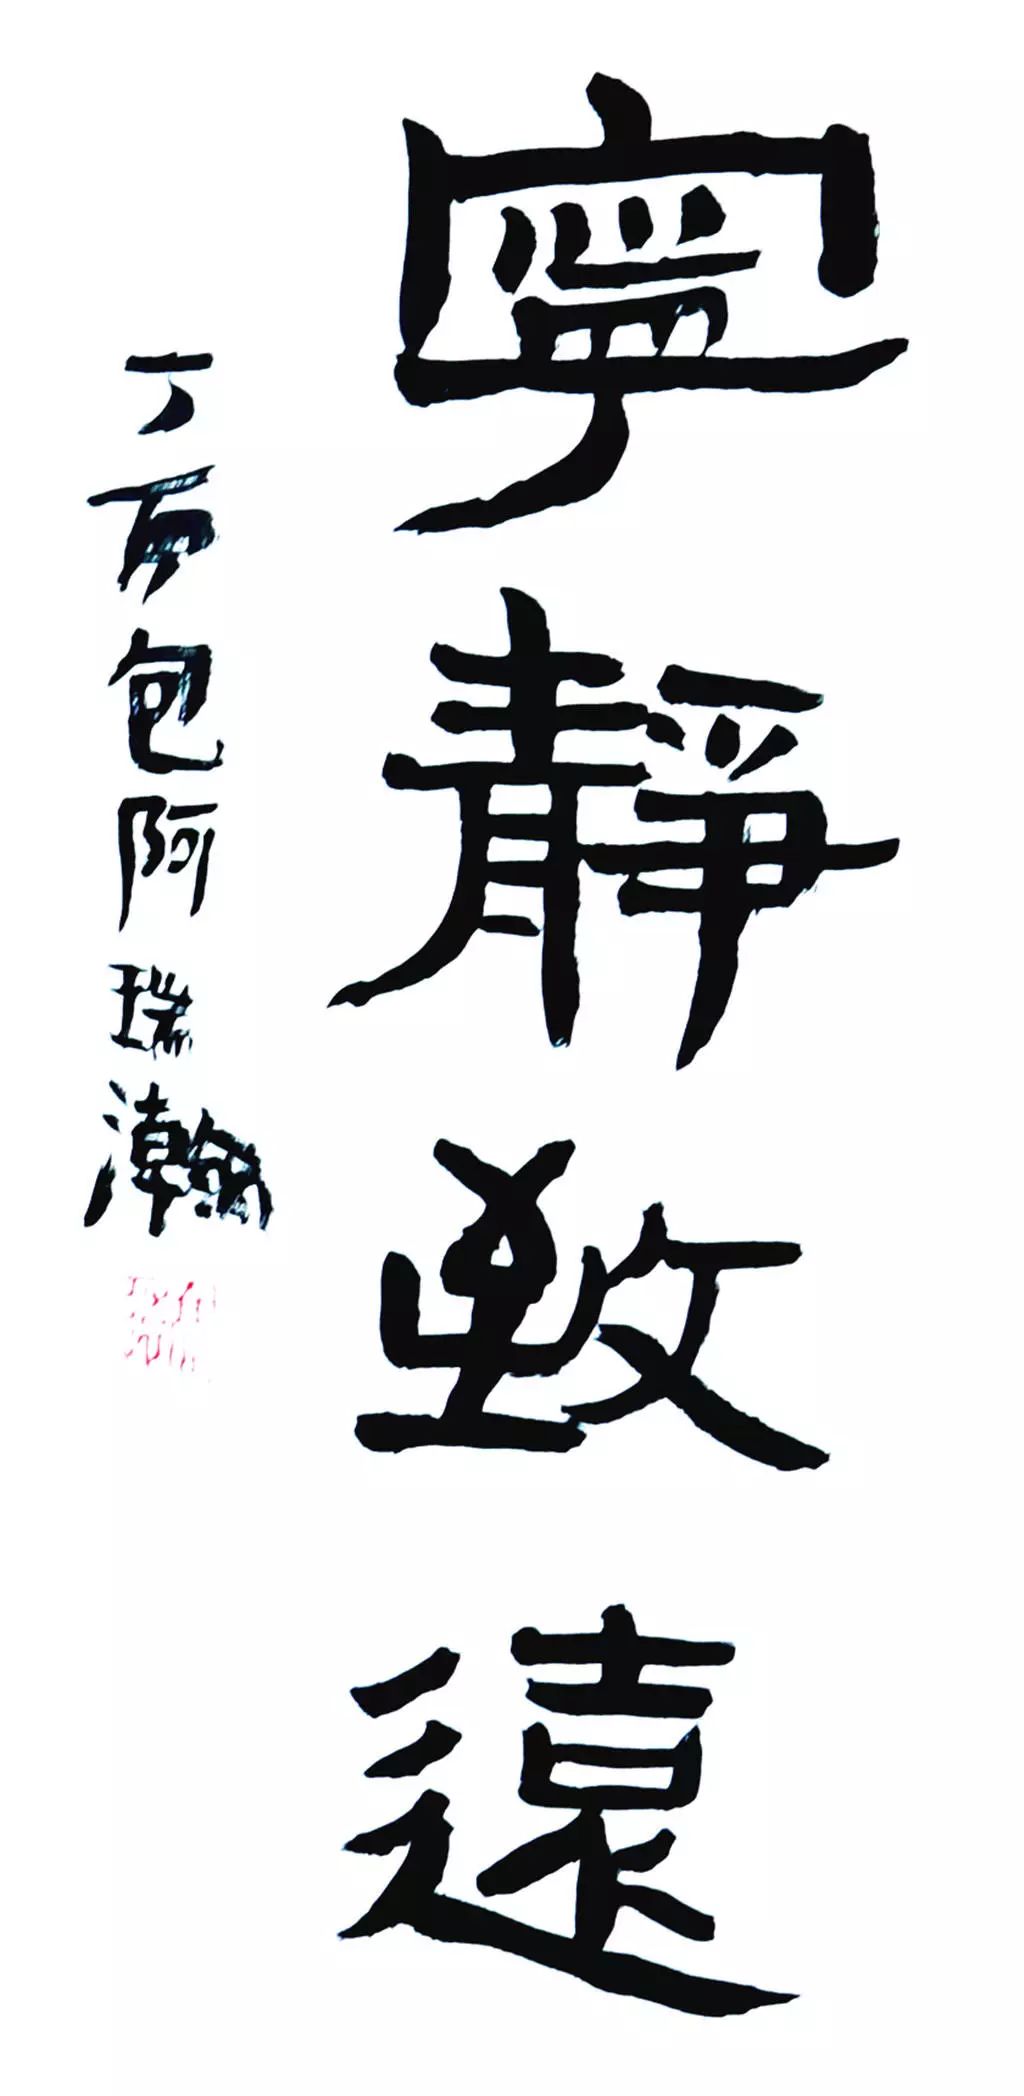 寧靜致遠
丁酉包阿瑞瀚